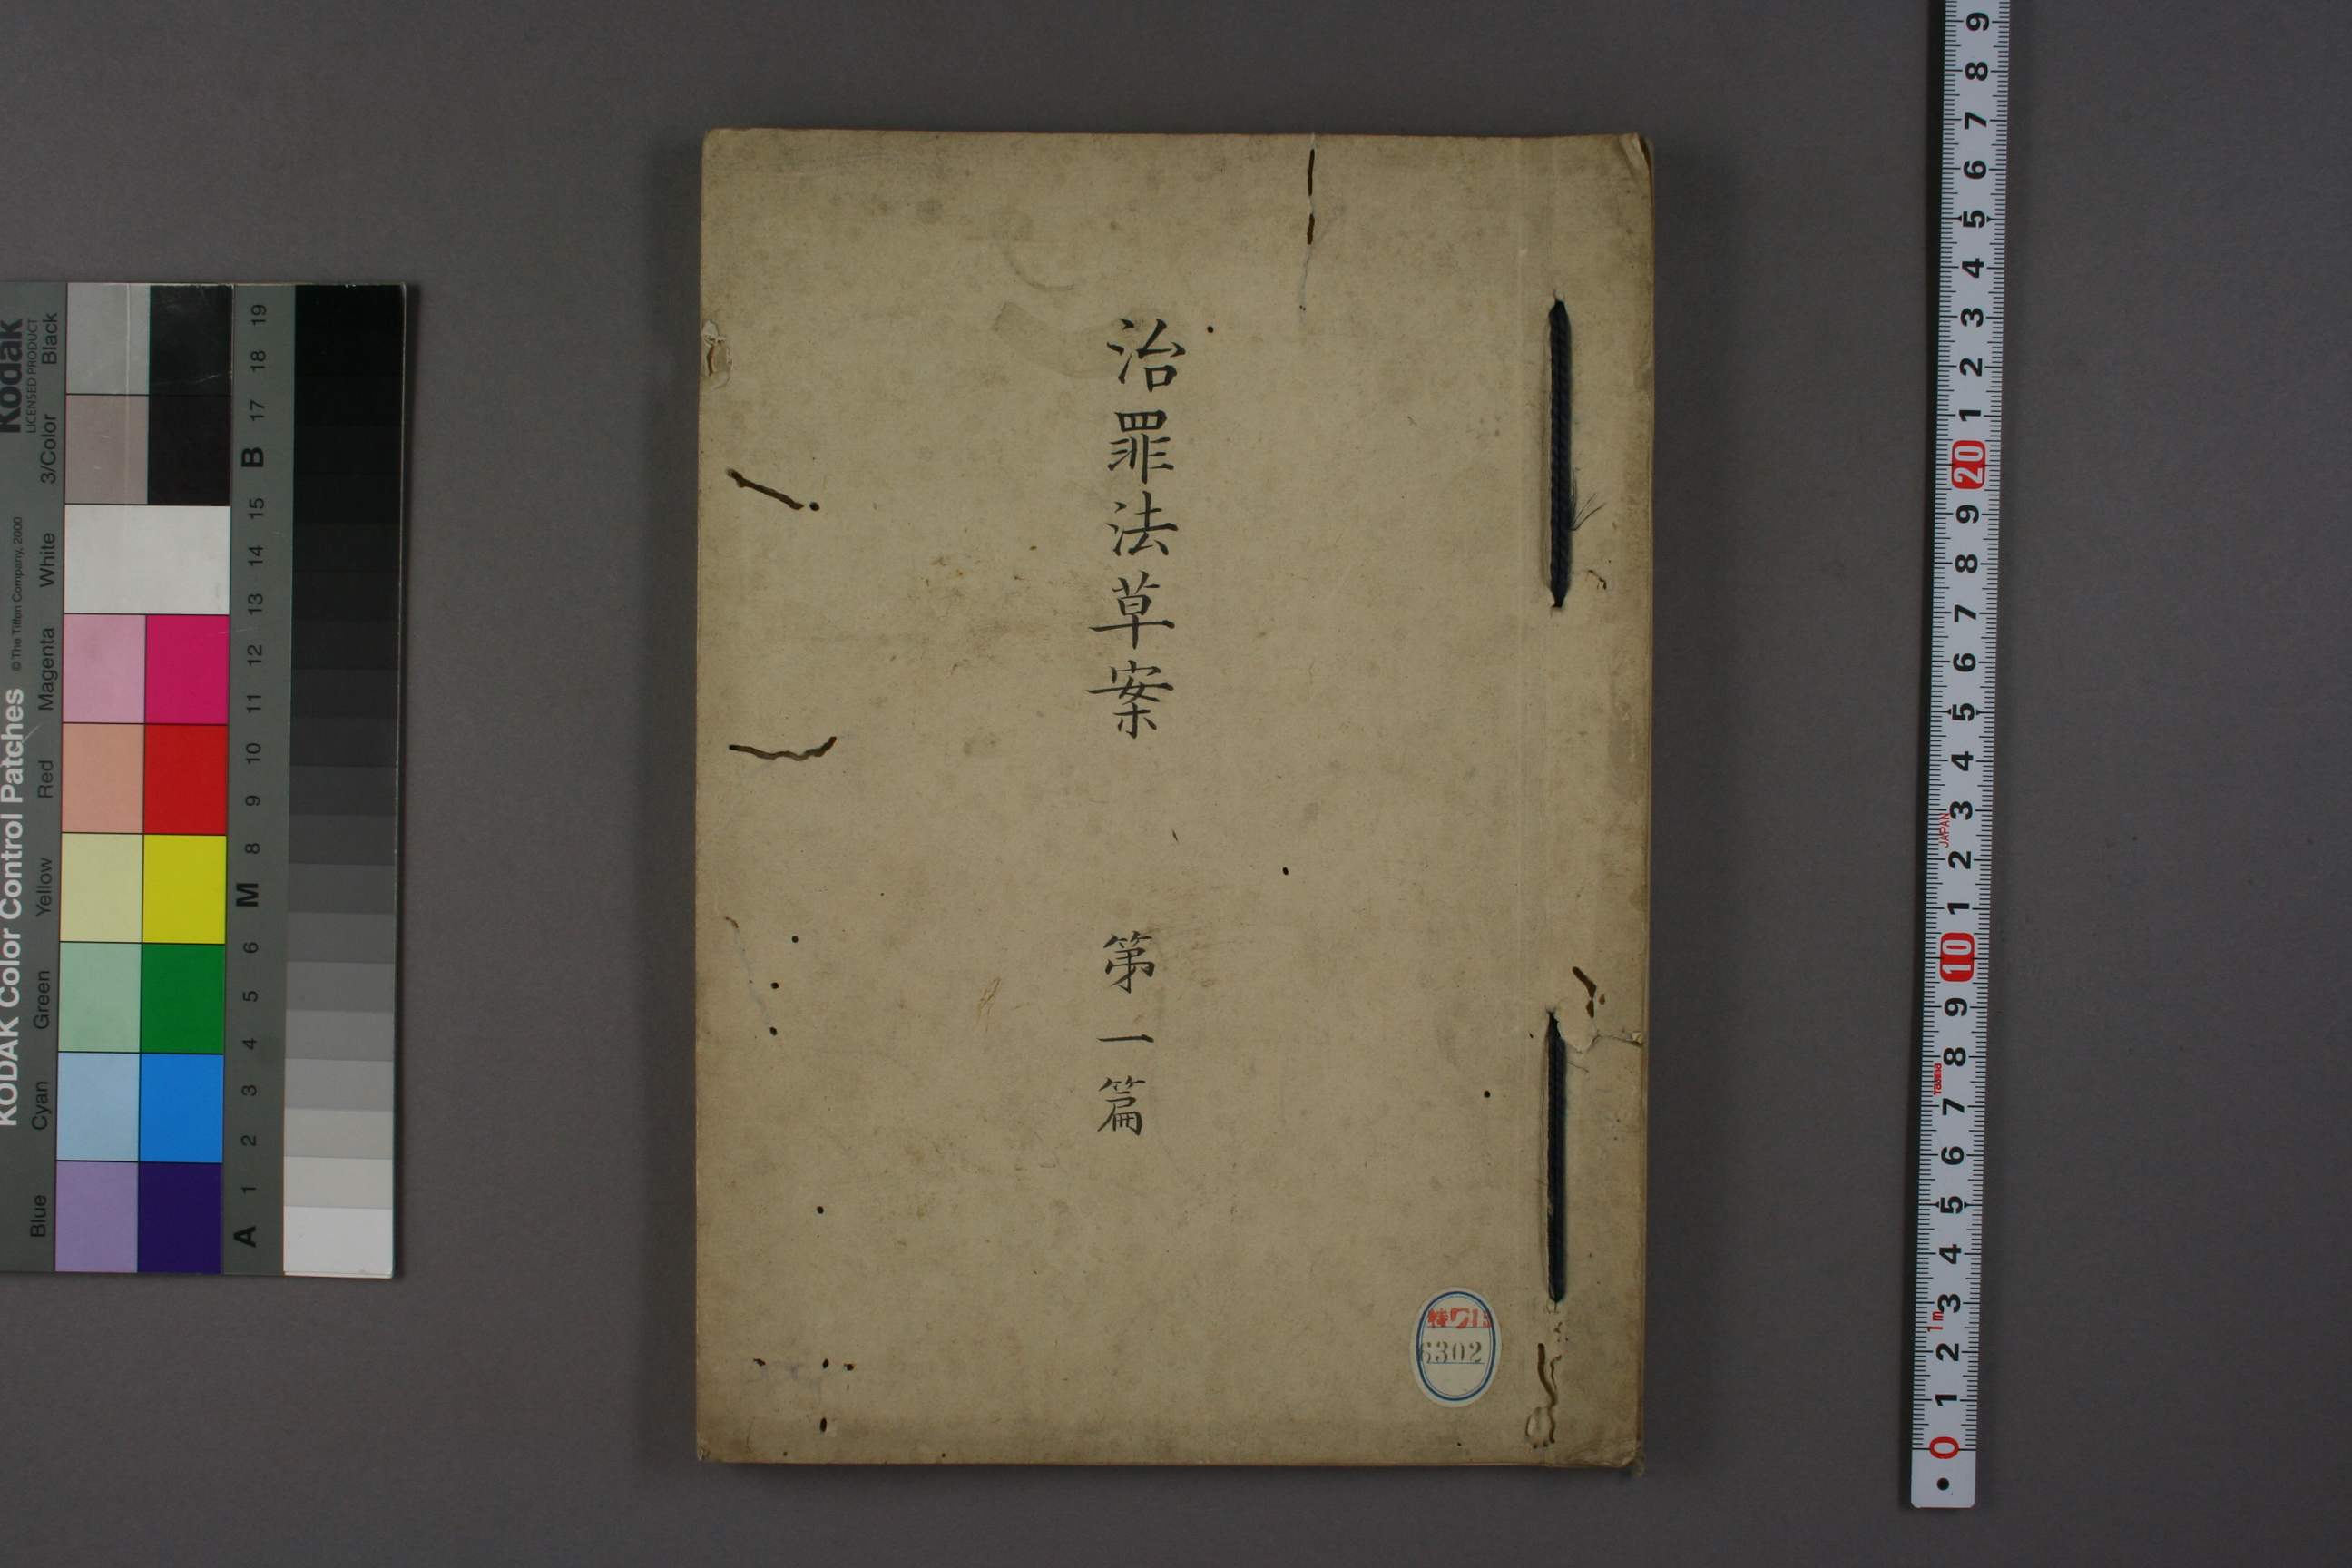 治罪法草案　第一篇
6302
Kodak
LICENSED PRODUCT
KODAK Color Control Patches
© The Tiffen Company, 2000
Blue Cyan Green Yellow Red Magenta White 3/Color Black
A 1 2 3 4 5 6 M 8 9 10 11 12 13 14 15 B 17 18 19
9 8 7 6 5 4 3 2 1 20 9 8 7 6 5 4 3 2 1 10 9 8 7 6 5 4 3 2 1 0
JAPAN
1m